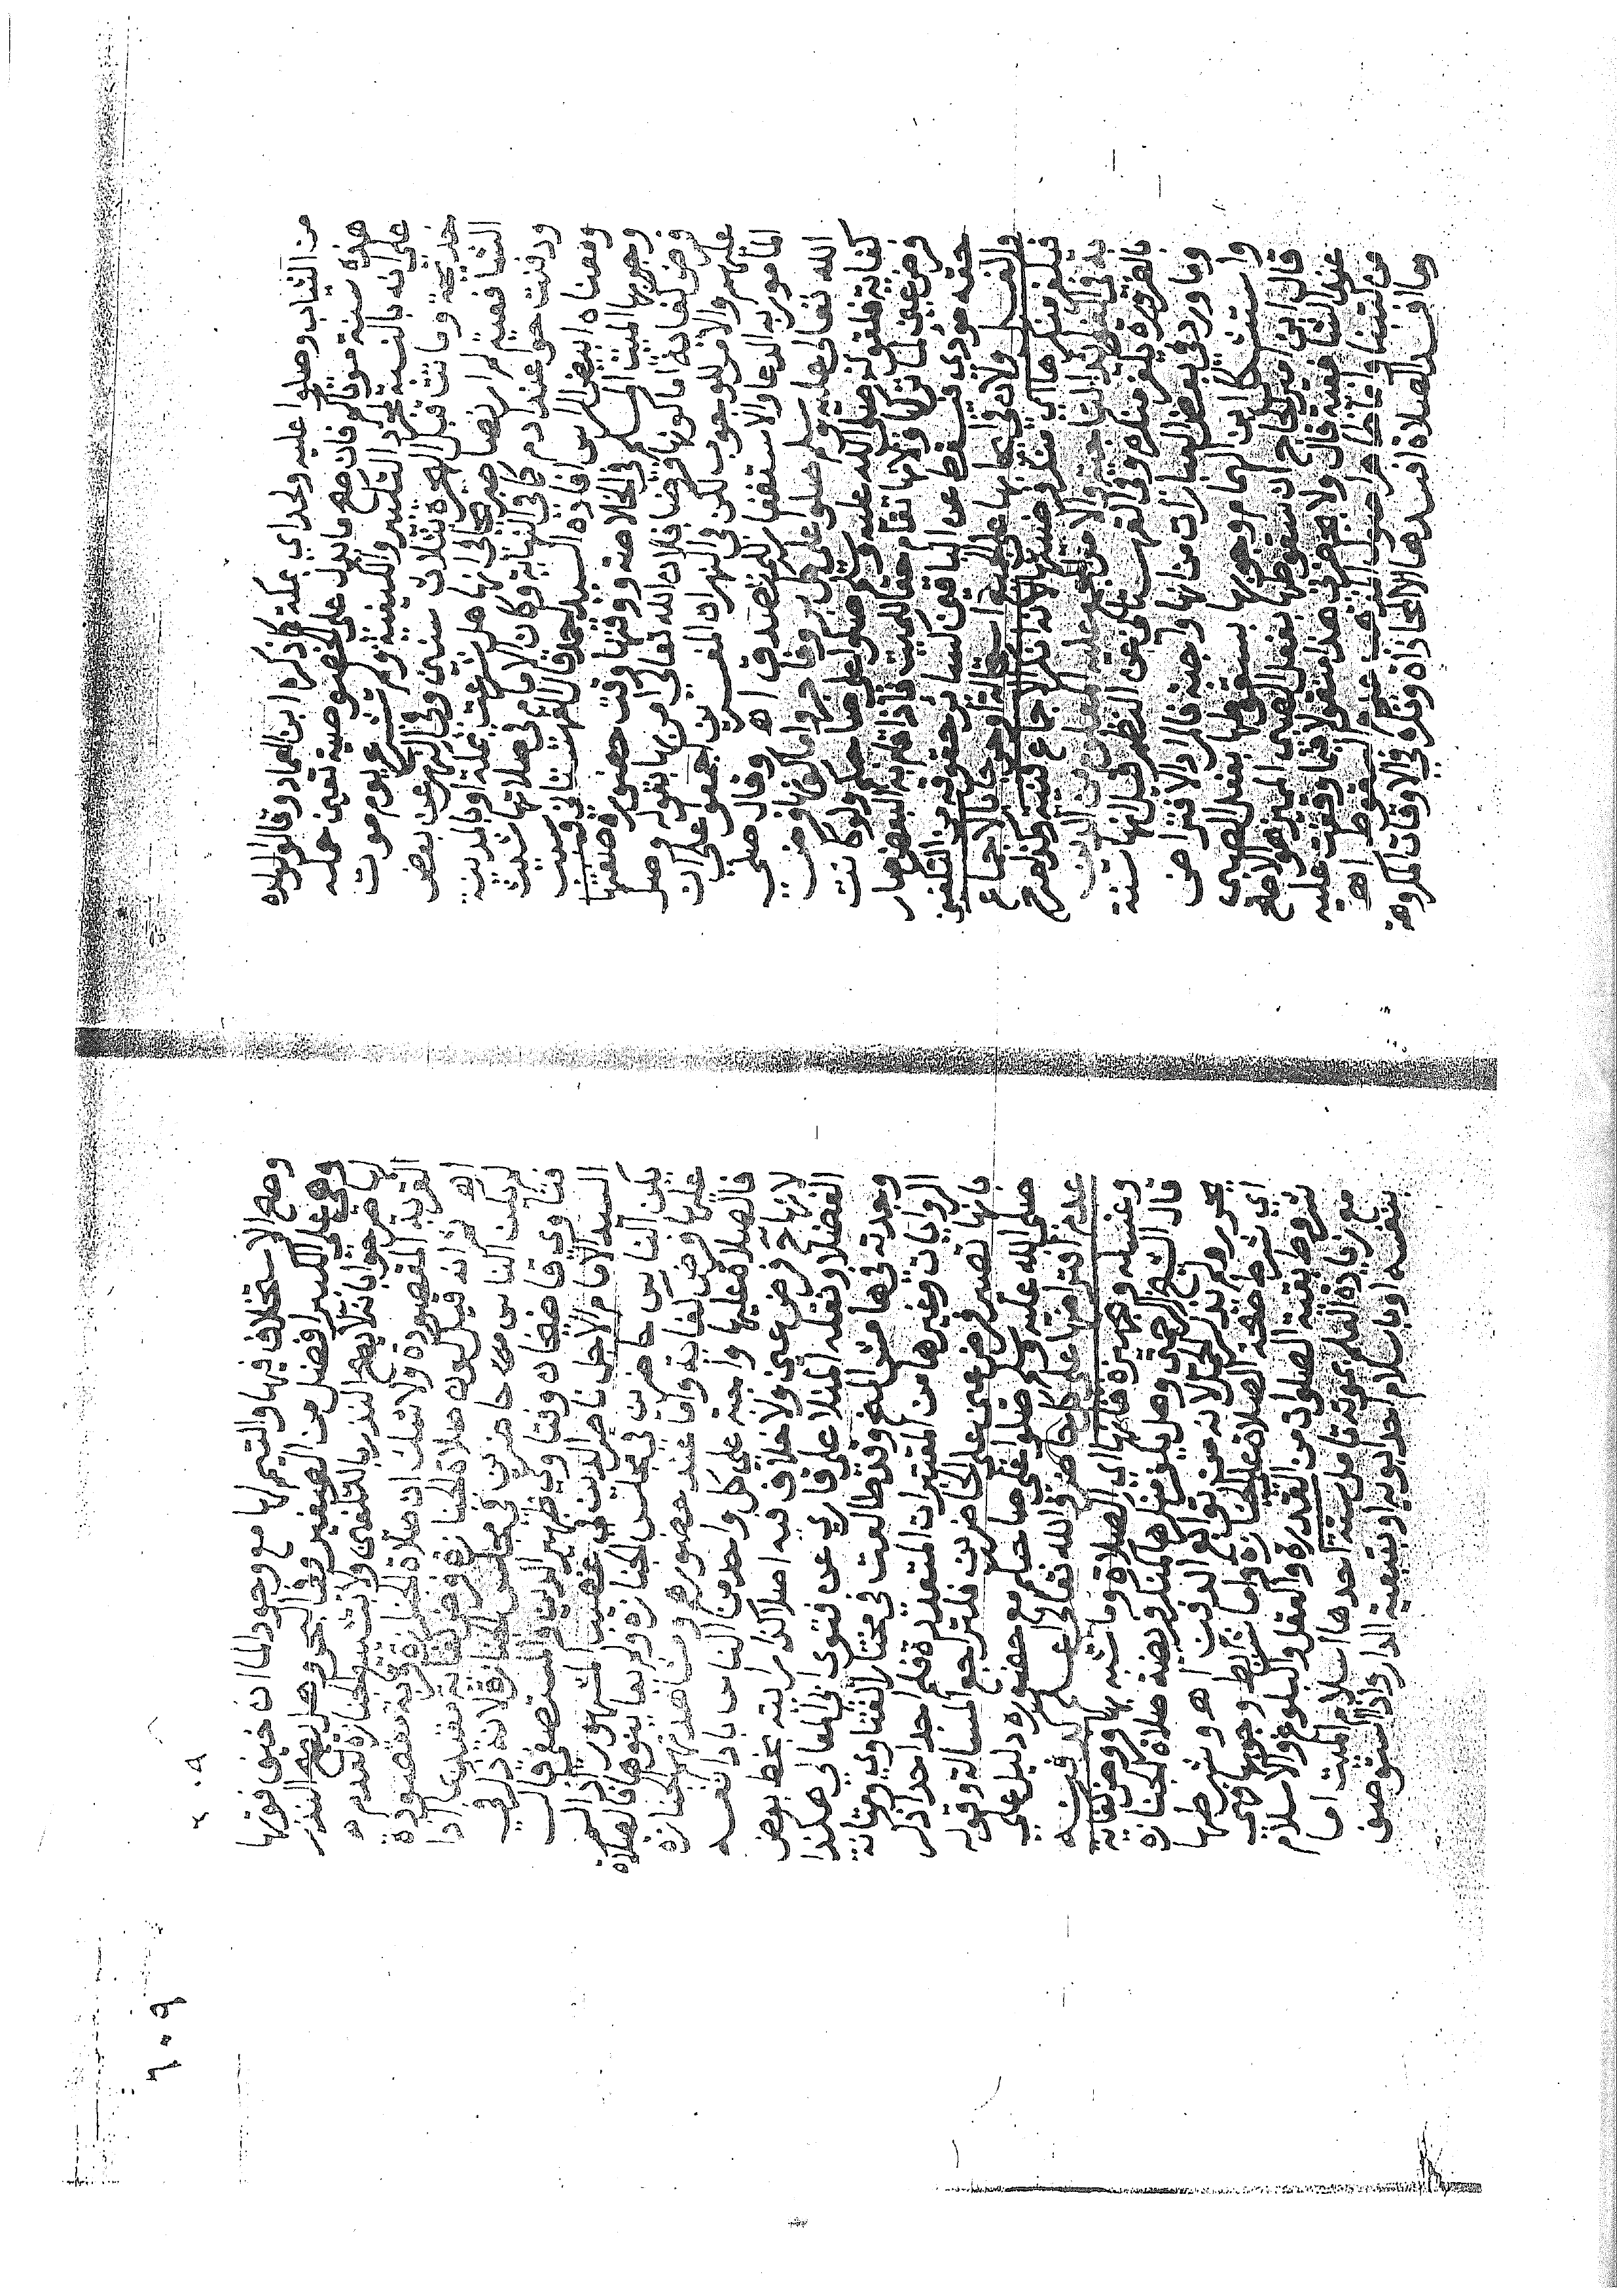 من الثياب وصلوا عليه ذكره ابن العماد وقالوا لولده
هذه سنة موتاكم فان صح ما يدل على الخصوصية تعين حمله
على انه بالنسبة لمجرد التكبير والكيفية ولم تشرع يوم موت
خديجة وماتت قبل الهجرة بثلاث سنين وفي النهر عن بعض
الشافعية لم ار نصا صريحا في انها هل شرعت بمكة او بالمدينة
ودفنت حوا عند ادم كما في النهاية وكان الامام في صلاتها شيث
ومعناه ابيض الراس افاده السيد احمد قال القهستاني وسبب
وجوبها الميت المسلم كما في الخلاصة ووقتها وقت حضوره صفتها
فرض كفاية اما كونها فرضا فلان الله تعالى امر بها بقوله وصل
عليهم والامر للوجوب لكن في النهر ان المفسرين اجمعوا على ان
المامور به الدعا والاستغفار للمتصدق اه وقال صلى
الله تعالى عليه وسلم صلوا على كل بر وفاجر واما كونها فرض
كفاية فلقوله صلى الله عليه وسلم صلوا على صاحبكم ولو كانت
فرض عين لما تركها ولانها تقام حقا للميت فاذا قام به البعض صار
حقه مودى فيسقط عن الباقين كسائر حقوقه من التكفين
والغسل ولان في ايجابها على الجميع استحالة او حرجا بالاجماع
فيكفر منكرها اي منكر فرضيتها لانه انكر الاجماع قنية كذا صرح
به في الفوائد التاجية والامر المجمع عليه المعلوم من الدين
بالضرورة يكفر منكره وفي القهستاني عن النظم وقيل انها سنة
وما ورد في بعض العبارات من انها واجبة فالمراد الافتراض
واستشكل ابن الهمام وجوبها بسقوطها بفعل الصبي
قال ابن امير الحاج ان سقوطها بفعل الصبي المميز هو الاصح
عند الشافعية قال ولا يحضرني هذا منقولا فيما وقفت عليه
من كتبنا وانما ظاهر اصول المذهب عدم السقوط اه
وما افسد الصلاة افسدها الا المحاذاة وتكره في الاوقات المكروهة
وصح الاستخلاف فيها والتيمم لها مع وجود الما ان خيف فوتها
وهي على الكبير افضل من الصغير وفي البحر وهل يصح النذر
بها صرحوا بانه لا يصح النذر بالتكفين ولا بتشييع الجنازة لعدم
القربة المقصودة ولا شك ان صلاة الجنازة قربة مقصودة
اه ثم انه قيل كون صلاة الجنازة فرض كفاية مقيد بما اذا
لم يكن الناس كلهم حاضرين في مجلس الجنازة لانه ذكر في
فتاوى قاضيخان وفتاوي ظهير الدين والمستصفى قال
السيد الامام الاجل ناصر الدين اذا لم
يكن الناس حاضرين في مجلس الجنازة وربما فالصلاة
عليها فرض كفاية واما عند حضورهم ومشاهدتهم الجنازة
فالصلاة عليها واجبة على كل واحد من الناس بادا نفسه
لانها ح فرض عين ولا خلاف فيه اصلا كذا رايته بخط بعض
الفضلا ونقله المنلا علي قاري عن فتوى هكذا
وجدته في هامش المنح وقد طالعت في مختار الفتاوي
الروايات وغيرها من المعتبرات المتعددة فلم اجد احدا ذكر
بانها تصير فرض عين على الحاضرين فلتراجع المسالة وقوله
صلى الله عليه وسلم صلوا على صاحبكم مع حضوره دليل على
عدم افتراضها على كل حاضر والله تعالى اعلم كدفنه
وغسله وتجهيزه فانها اي الصلاة وما شبه بها فرض كفاية
قال الشيخ الرحمتي وهل يكفر منكر فرضية صلاة الجنازة
يحرر ولم يذكر الحمل لانه من توابع الدفن اه وشرطها
اي شرط صحة الصلاة على الجنازة واما شرائط وجوبها فهي
شروط بقية الصلوات من القدرة والعقل والبلوغ والاسلام
مع زيادة العلم بموته تامل ستة احدها اسلام الميت اما
بنفسه او باسلام احد ابويه او بتبعية الدار واذا استوصف
٢٠٩
٢٠٩